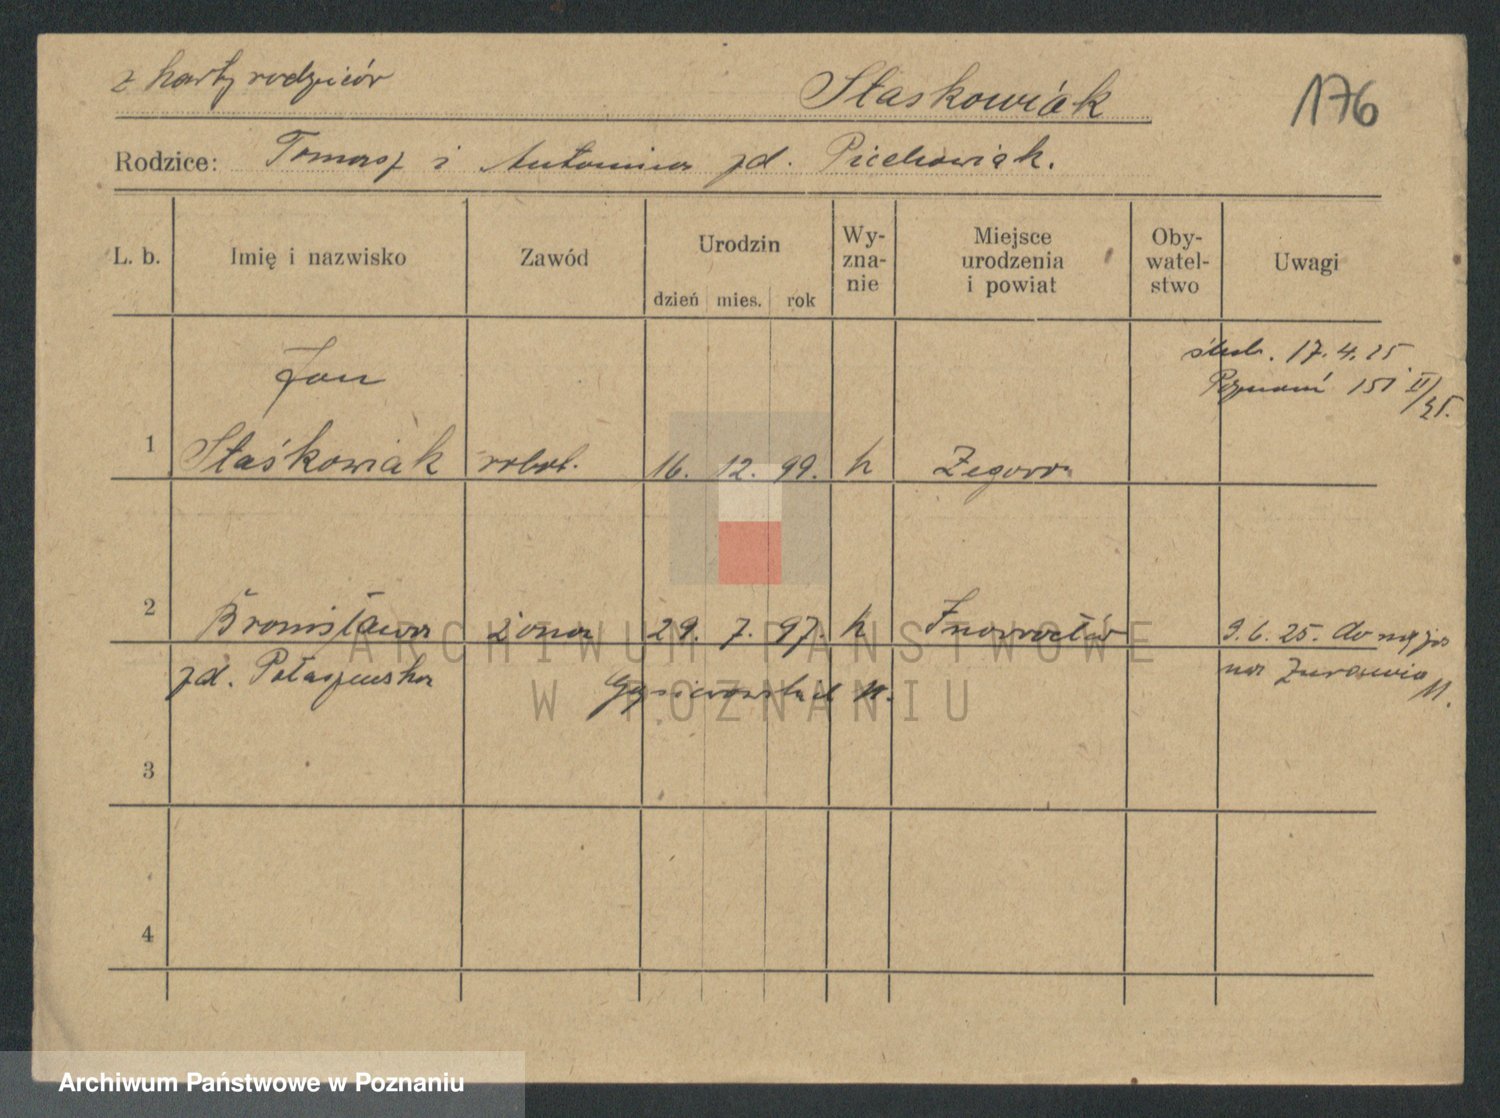 z karty rodziców
Staśkowiak
176
Rodzice: Tomasz i Antonina zd. Piechowiak.
L. b. Imię i nazwisko Zawód Urodzin dzień mies. rok Wy-zna-nie Miejsce urodzenia i powiat Oby-watel-stwo Uwagi
ślub. 17.4.25
Poznań 151 II/25.
Jan
1 Staśkowiak robot. 16. 12. 99. k
2 Bronisława żona 29. 7. 97. k Inowrocław 9.6.25. do męża
zd. Połaszewska na Żurawia
11.
3
4
ARCHIWUM PAŃSTWOWE
W POZNANIU
Archiwum Państwowe w Poznaniu